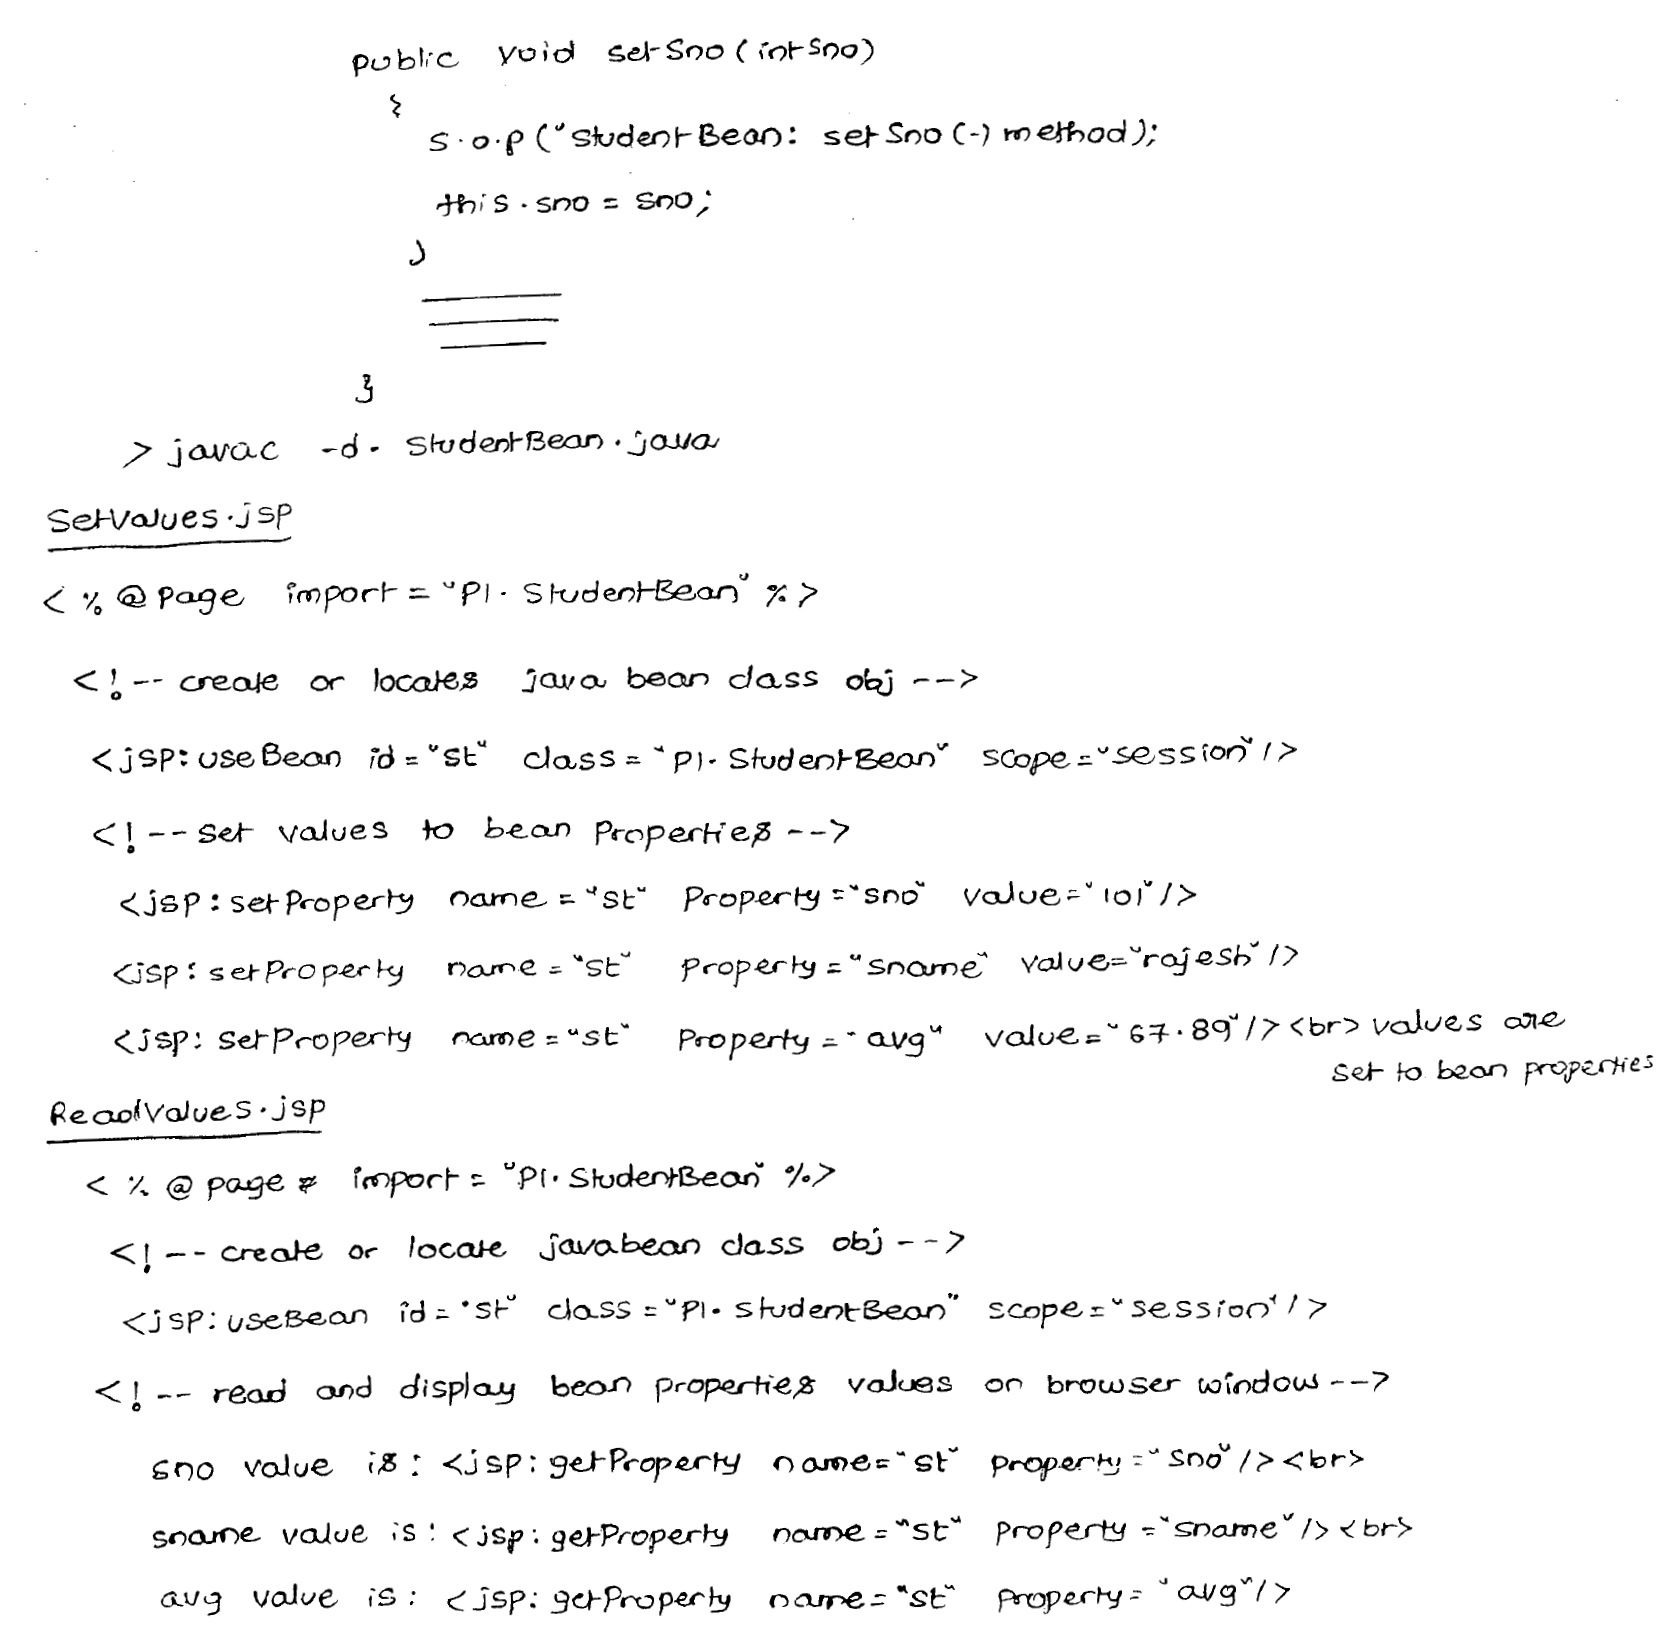 public void setSno(int sno)
{
s.o.p("StudentBean: setSno(-) method);
this.sno = sno;
}
}
> javac -d. StudentBean.java
SetValues.jsp
<%@page import="P1.StudentBean"%>
<!-- create or locates java bean class obj -->
<jsp:useBean id="st" class="P1.StudentBean" scope="session"/>
<!--set values to bean Properties-->
<jsp:setProperty name="st" Property="sno" value="101"/>
<jsp:setProperty name="st" Property="sname" value="rajesh"/>
<jsp:setProperty name="st" Property="avg" value="67.89"/><br> values are
set to bean properties
ReadValues.jsp
<%@page import="P1.StudentBean"%>
<!-- create or locate javabean class obj -->
<jsp:useBean id="st" class="P1.StudentBean" scope="session"/>
<!-- read and display bean properties values on browser window-->
sno value is: <jsp:getProperty name="st" property="sno"/><br>
sname value is: <jsp:getProperty name="st" property="sname"/><br>
avg value is: <jsp:getProperty name="st" property="avg"/>